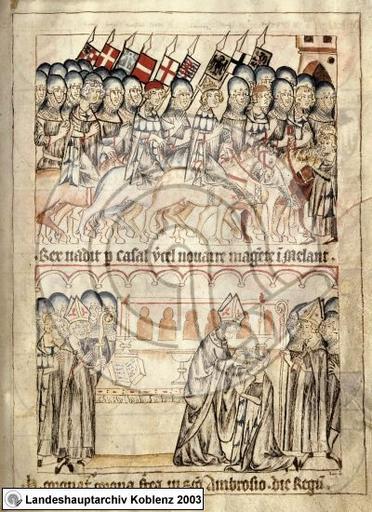 Rex vadit p casal v'cel novarre mag̅te i Melant.
coronat corona frea in sco Ambrosio. die Regu
Landeshauptarchiv Koblenz 2003